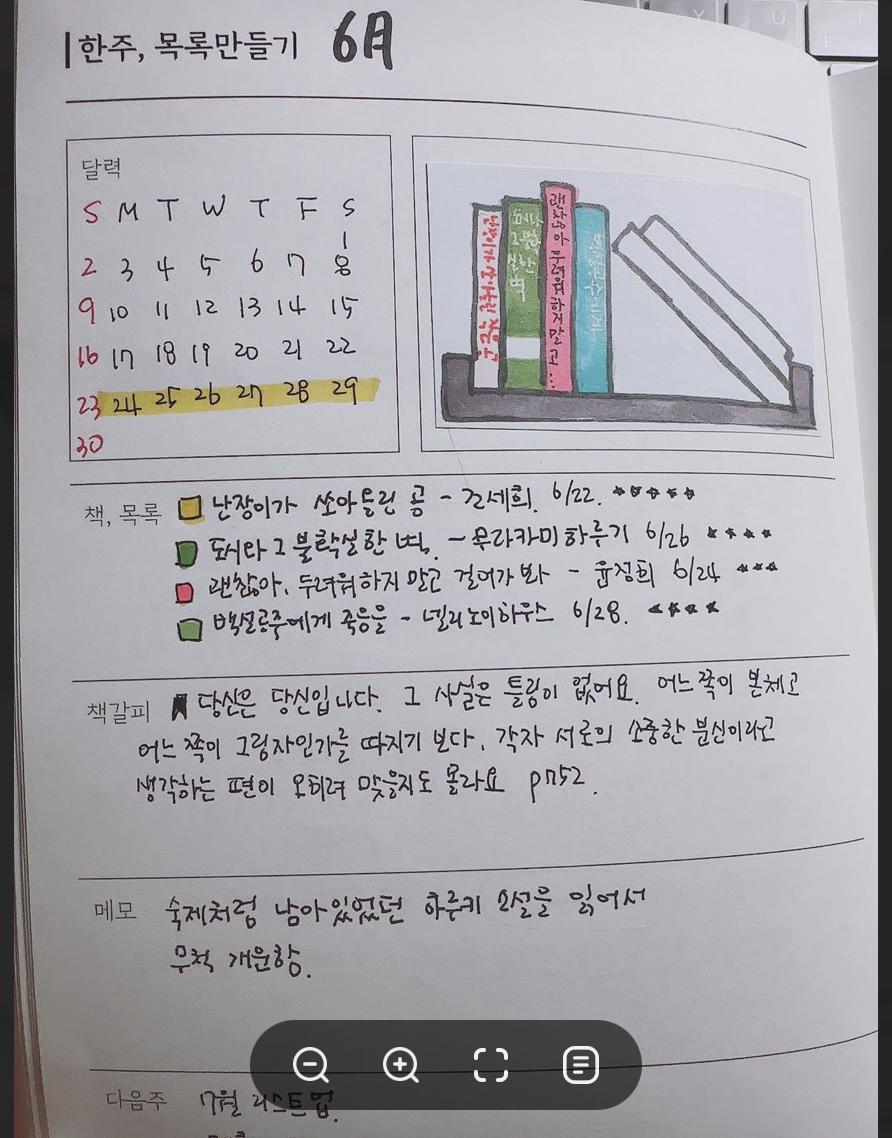 한주, 목록만들기 6月
달력
S M T W T F S
1
2 3 4 5 6 7 8
9 10 11 12 13 14 15
16 17 18 19 20 21 22
23 24 25 26 27 28 29
30
괜찮아 두려워하지말고...
책, 목록
난장이가 쏘아올린 공 - 조세희. 6/22. ★★★★★
도시와 그 불확실한 벽. - 무라카미 하루키 6/26 ★★★★
괜찮아, 두려워하지 말고 걸어가 봐 - 윤정희 6/24 ★★★
백설공주에게 죽음을 - 넬레노이하우스 6/28. ★★★★
책갈피
당신은 당신입니다. 그 사실은 틀림이 없어요. 어느 쪽이 본체고
어느 쪽이 그림자인가를 따지기 보다, 각자 서로의 소중한 분신이라고
생각하는 편이 오히려 맞을지도 몰라요 p752.
메모
숙제처럼 남아있었던 하루키 소설을 읽어서
무척 개운함.
다음주
7월 리스트업.